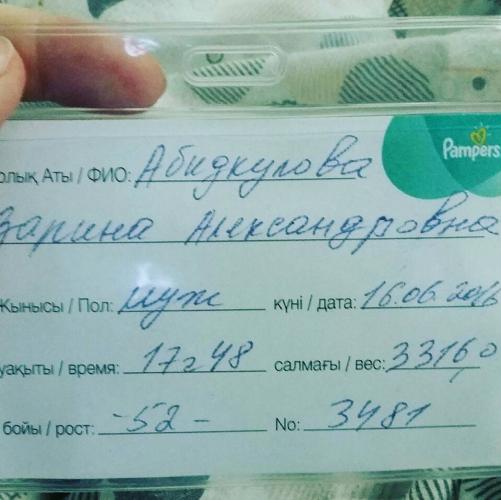 Pampers
олық Аты / ФИО: Абидкулова
Зарина Александровна
Жынысы / Пол: муж күні / дата: 16.06.2016
уақыты / время: 17ч 48 салмағы / вес: 3316,0
бойы / рост: -52- No: 3481